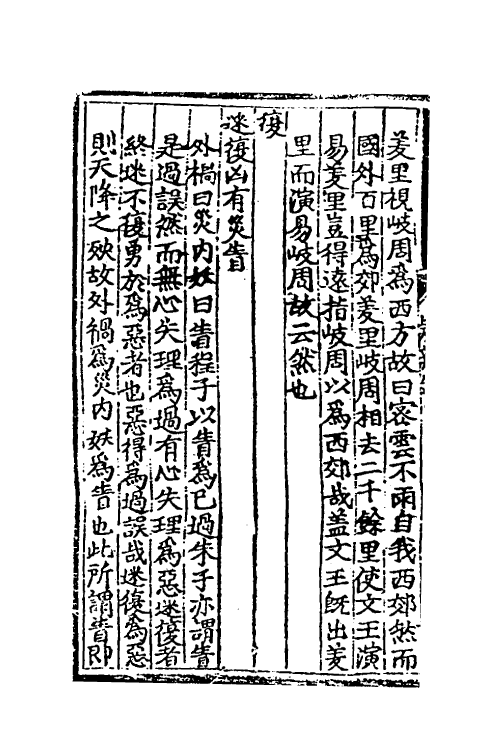 羑里視岐周爲西方故曰密雲不雨自我西郊然而
國外百里爲郊羑里岐周相去二千餘里使文王演
易羑里豈得遠指岐周以爲西郊哉盖文王旣出羑
里而演易岐周故云然也
復
迷復凶有災眚
外禍曰災内妖曰眚程子以眚爲已過朱子亦謂眚
是過誤然而無心失理爲過有心失理爲惡迷復者
終迷不復勇於爲惡者也惡得爲過誤哉迷復爲惡
則天降之殃故外禍爲災内妖爲眚也此所謂眚即